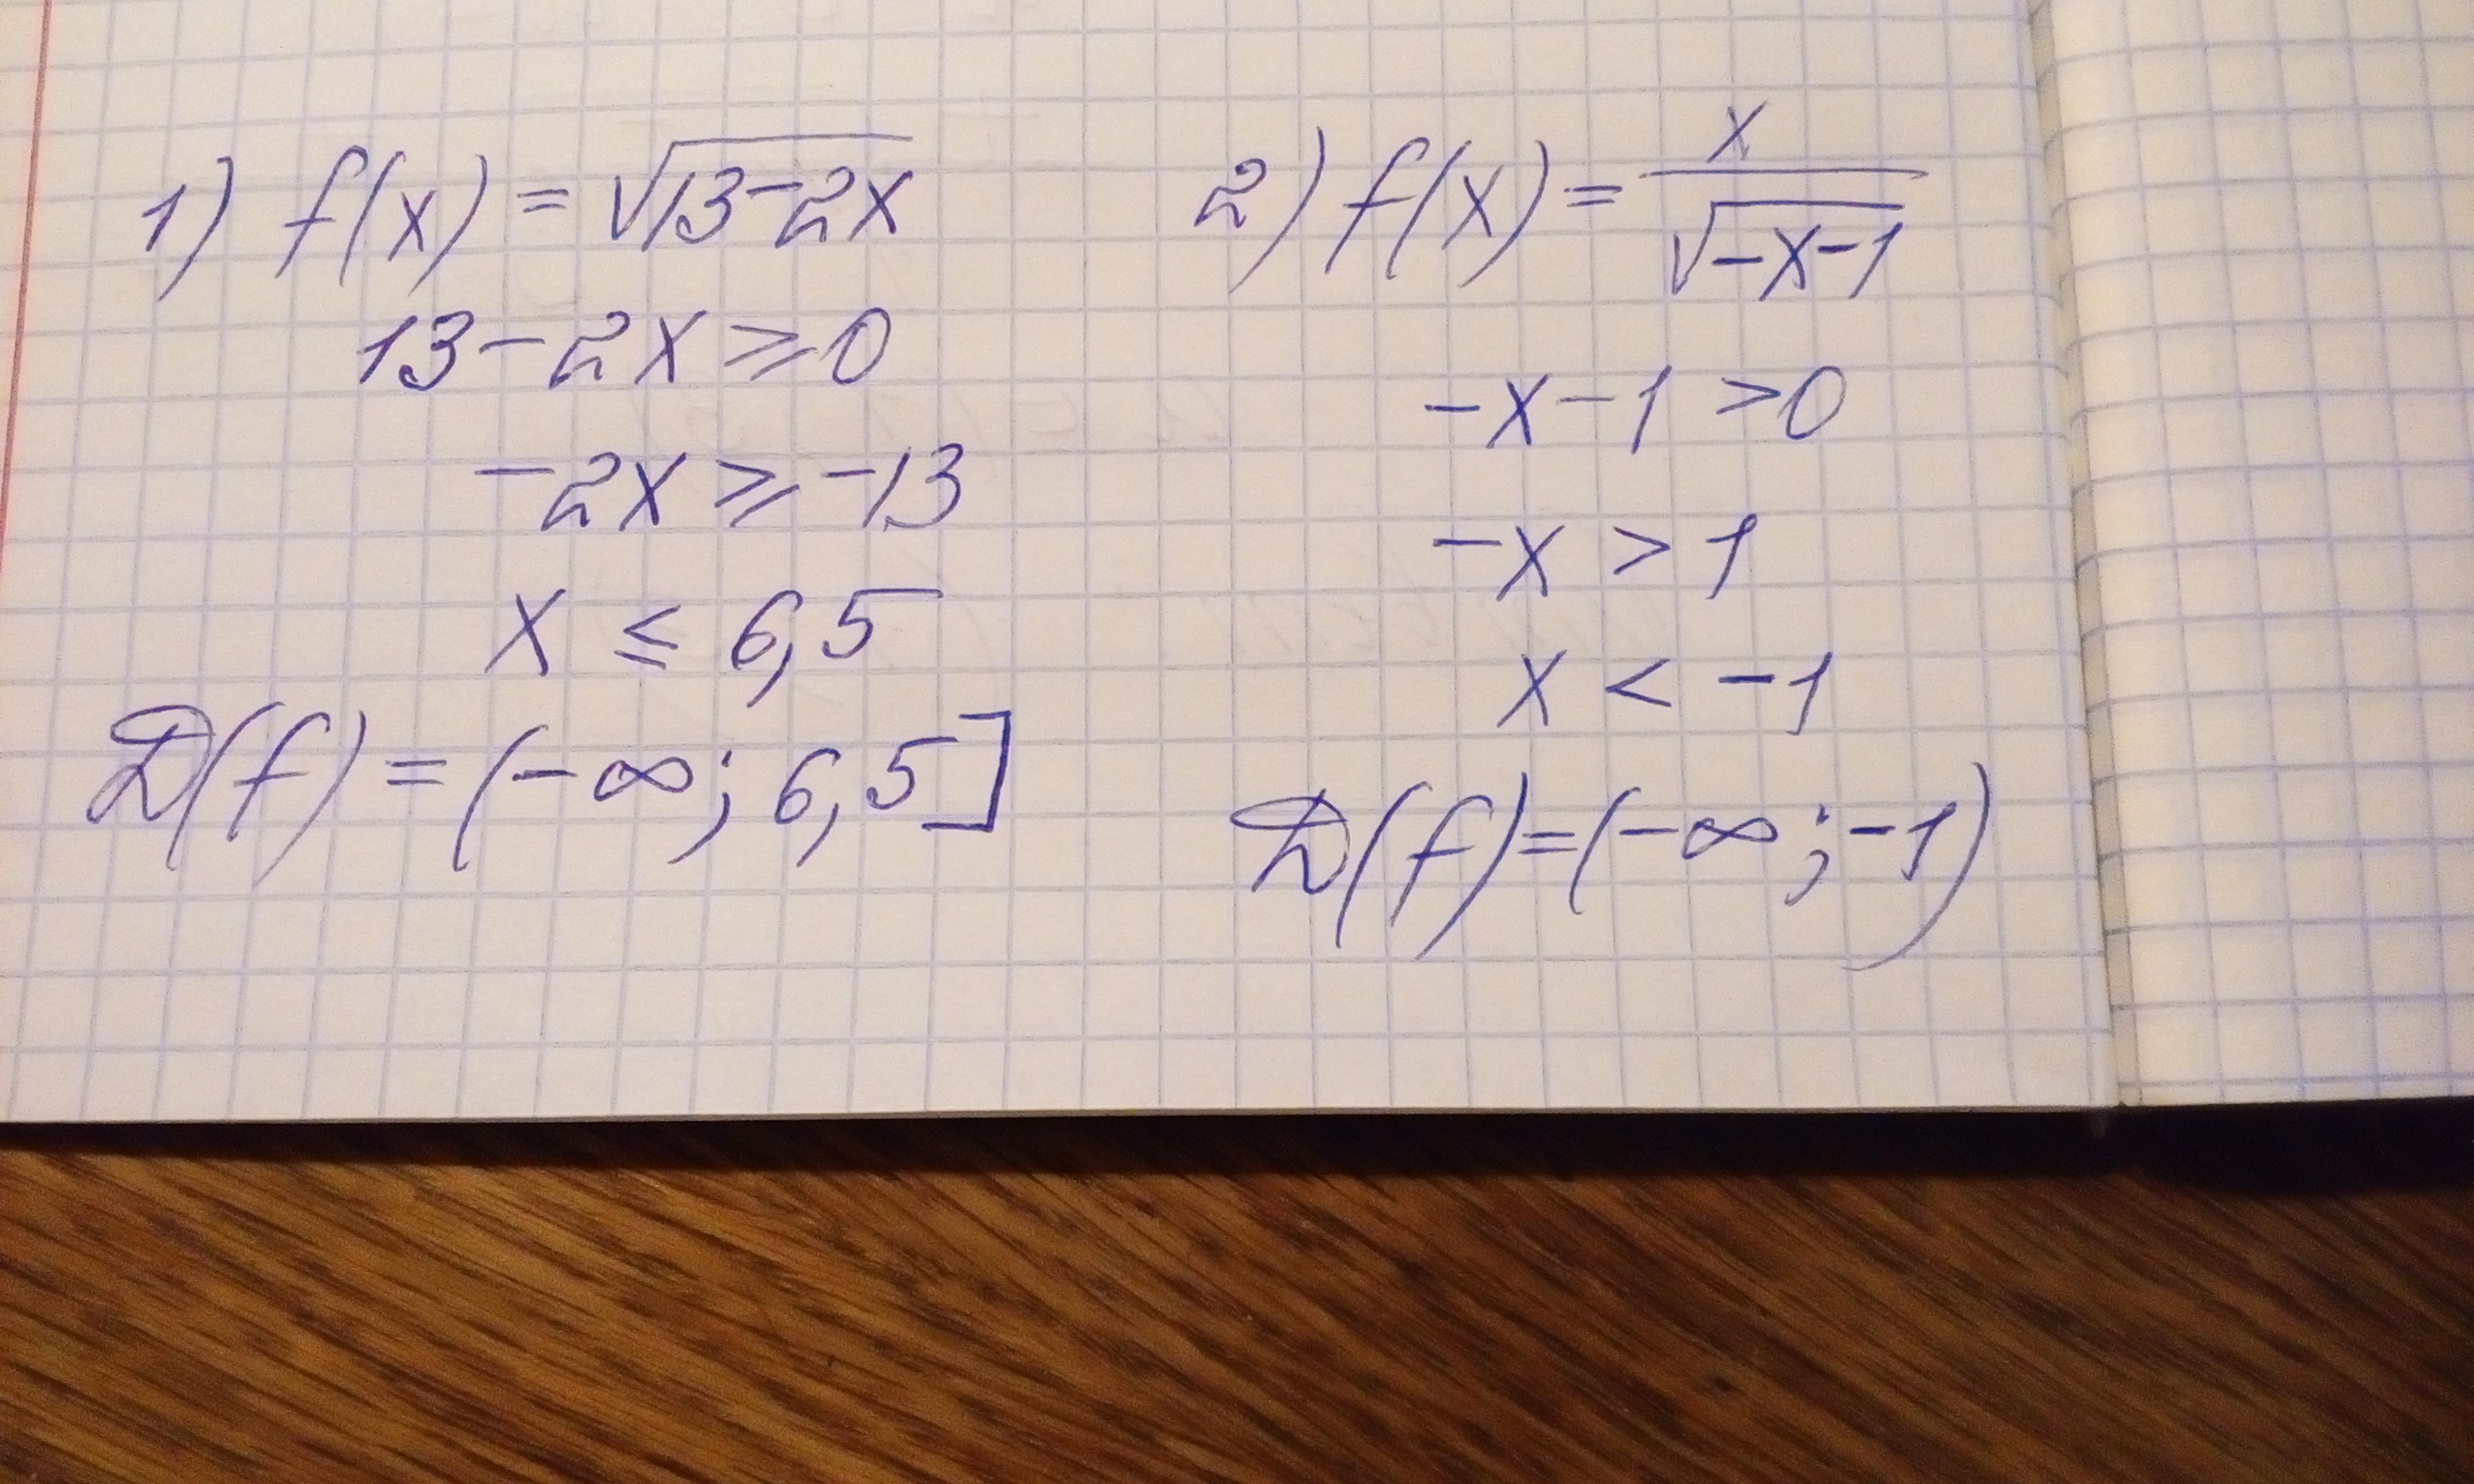 1) f(x) = √(13-2x)
13-2x ≥ 0
-2x ≥ -13
x ≤ 6,5
D(f) = (-∞; 6,5]
2) f(x) = x/√(-x-1)
-x-1 > 0
-x > 1
x < -1
D(f) = (-∞; -1)